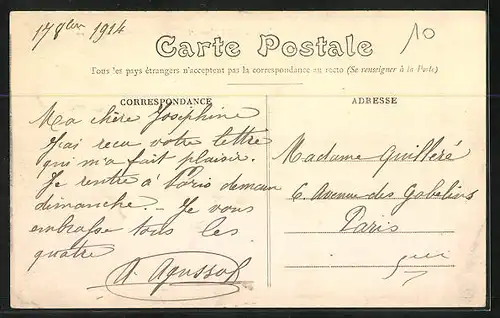 17 8bre 1914
10
Carte Postale
Tous les pays étrangers n'acceptent pas la correspondance au recto (Se renseigner à la Poste)
CORRESPONDANCE
Ma chère Josephine
J'ai recu votre lettre
qui m'a fait plaisir.
Je rentre à Paris demain
dimanche – Je vous
embrasse tous les
quatre
A.
ADRESSE
Madame Guilleré
6. Avenue des Gobelins
Paris